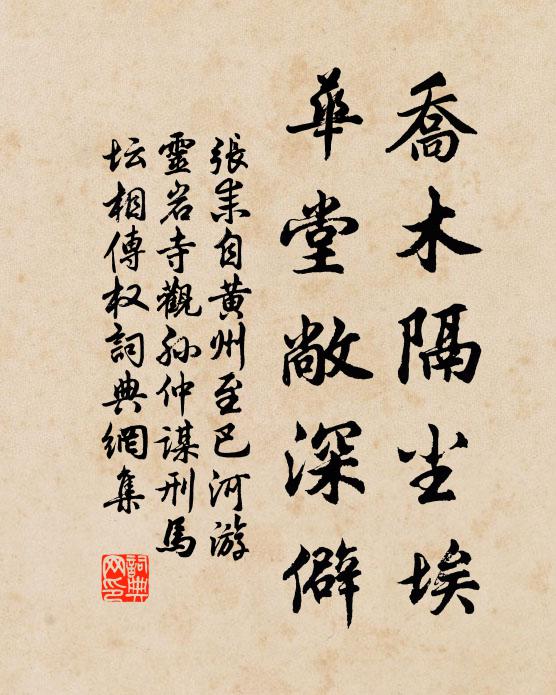 喬木隔尘埃
華堂敞深僻
張耒自黄州至巴河游
靈岩寺觀孙仲謀刑馬
坛相傳权詞典網集
詞典网印